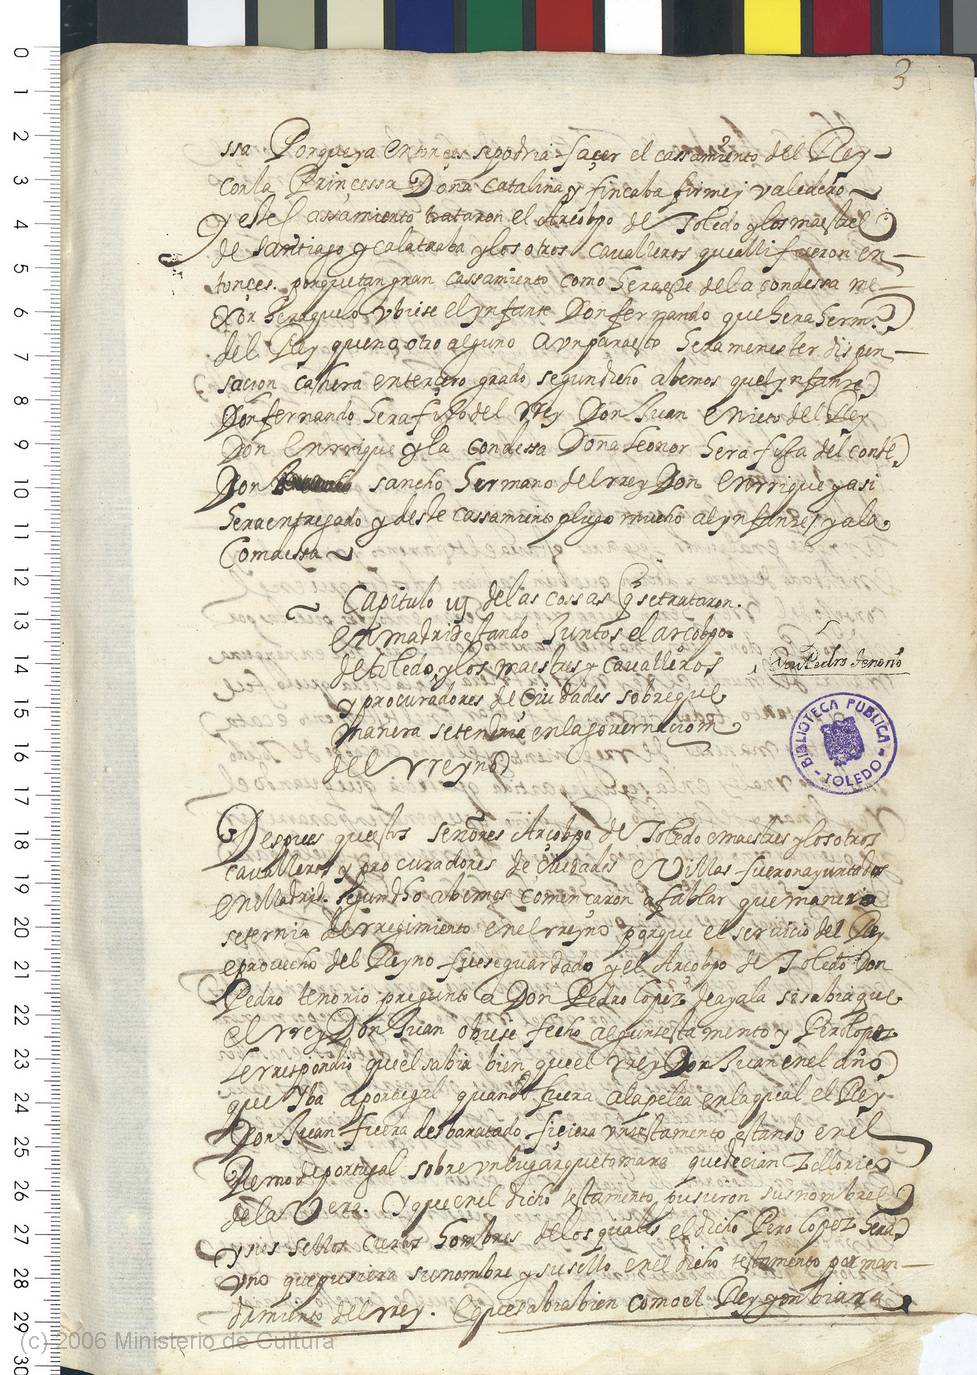 3
ssa Porque ya entonces se podria façer el cassamiento del Rey
con la Prinçessa Doña Catalina y fincaba firme y valedero
y este Cassamiento trataron el Arçobpo de Toledo y los maestres
de Santiago y Calatraba y los otros Cavalleros que alli fueron en-
tonçes. porque tan gran cassamiento como hera este de la condessa me-
xor hera que lo ubiese el ynfante Don fernando que hera herm.º
del Rey que no otro alguno aunpara esto hera menester dispen-
sacion ca hera en terçero grado segun dicho abemos quel ynfante
Don fernando hera fijo del rrey Don Juan e nieto del Rey
Don Enrrique y la Condessa Dona leonor hera fija del conde
Don sancho hermano del rrey Don Enrrique y asi
hera entregado y deste cassamiento plugo mucho al ynfante y a la
Condessa
Capitulo iij de las cossas q se trataron.
En madrid estando Juntos el arcobpo
de toledo, y los maestres y cavalleros
y procuradores de Ciudades sobre que
manera se tendria en la governacion
del rreyno
Don Pedro tenorio
BIBLIOTECA PUBLICA
- TOLEDO -
Despues questos señores Arcobpo de Toledo e maestres y los otros
cavalleros y procuradores de ciudades e Villas fueron ayuntados
en Madrid. segun dho abemos començaron a fablar que manera
se ternia del rregimiento en el rreyno porque el servicio del Rey
e provecho del Reyno fuese guardado y el Arcobpo de Toledo Don
Pedro tenorio pregunto a Don Pedro Lopez de ayala si sabia que
el rrey Don Juan obiese fecho algun testamento y Pero lopez
le rrespondio quel sabia bien que el rrey Don Juan en el año
que Yba a portugal quando fuera a la pelea en la qual el Rey
Don Juan fuera desbaratado ficiera un testamento estando en el
Reino de portugal sobre un lugar que tomara que decian Zillorico
de la Vera. Y que en el dicho testamento, pusieron sus nombres
y sus sellos ciertos hombres de los quales el dicho Pero lopez hera
uno que pusiera su nombre y su sello en el dicho testamento por man-
damiento del rrey. E que sabia bien como el Rey
(c) 2006 Ministerio de Cultura